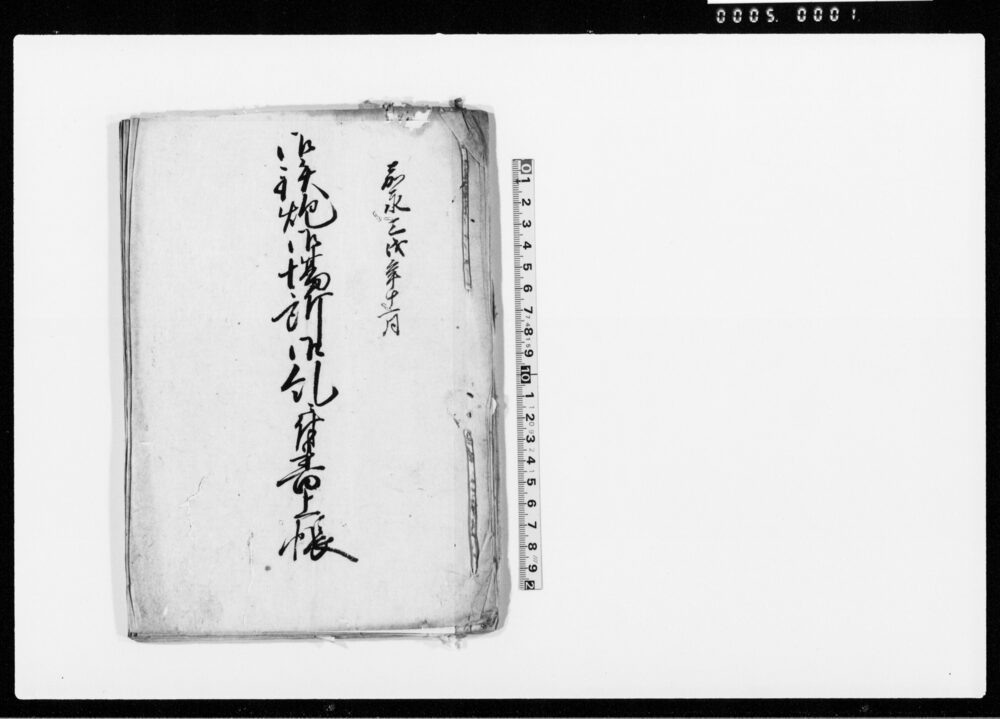 0005. 0001.
嘉永三戌年十一月
御鉄炮御場所御糺ニ付書上帳
0 1 2 3 4 5 6 7 8 9 10 1 2 3 4 5 6 7 8 9 2